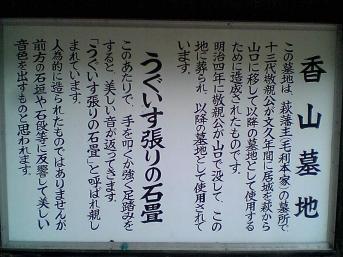 香山墓地
この墓地は、萩藩主（毛利本家）の墓所で、
十三代敬親公が文久年間に居城を萩から
山口に移して以降の墓地として使用する
ために造成されたものです。
明治四年に敬親公が山口で没して、この
地に葬られ、以降の墓地として使用されて
います。
うぐいす張りの石畳
このあたりで、手を叩くか強く足踏みを
すると、美しい音が返ってきます。
「うぐいす張りの石畳」と呼ばれ親し
まれています。
人為的に造られたものではありませんが
前方の石垣や石段等に反響して美しい
音色を出すものと思われます。